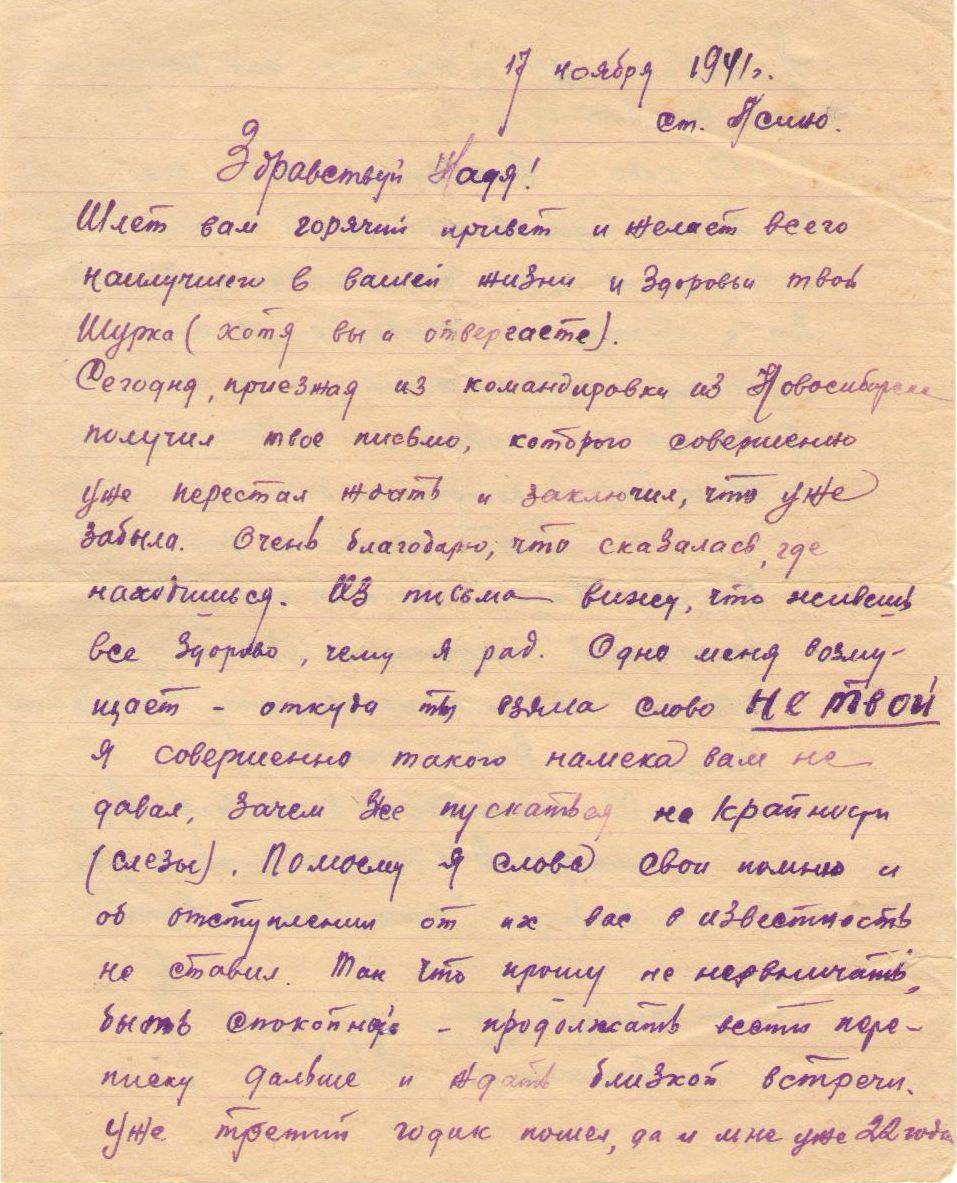 17 ноября 1941г.
ст. Асино.
Здравствуй Надя!
Шлет вам горячий привет и желает всего
наилучшего в вашей жизни и здоровьи твой
Шурка (хотя вы и отвергаете).
Сегодня, приезжая из командировки из Новосибирска
получил твое письмо, которого совершенно
уже перестал ждать и заключил, что уже
забыла. Очень благодарю, что сказалась, где
находишься. Из письма вижу, что живешь
все здорово, чему я рад. Одно меня возму-
щает – откуда ты взяла слово не твой
Я совершенно такого намека вам не
давал, зачем же пускаться на крайности
(слезы). Помоему я слова свои помню и
об отступлении от их вас в известность
не ставил. Так что прошу не нервничать,
быть спокойной – продолжать вести пере-
писку дальше и ждать близкой встречи.
Уже третий годик пошел, да и мне уже 22 года